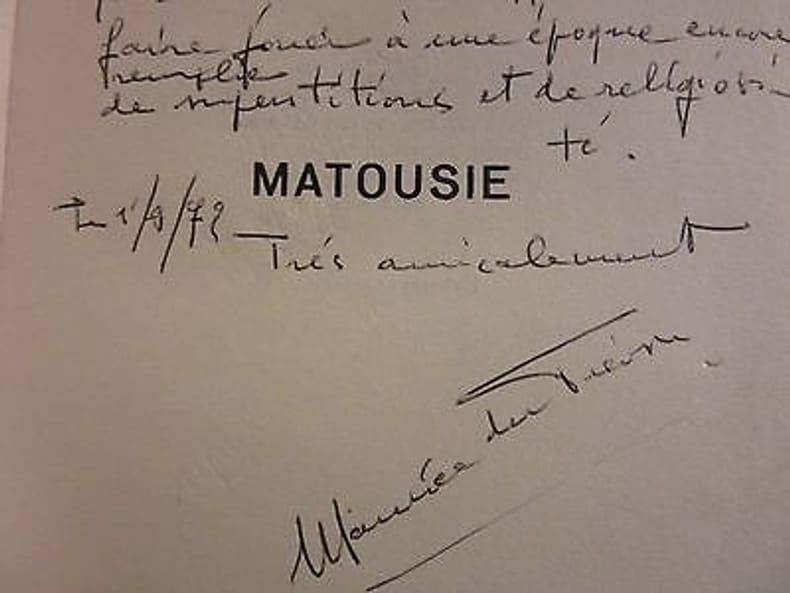 faire foucà à une époque encore
remplie
de superstitions et de religiosi-
té.
MATOUSIE
Le 1/9/72 - Trés amicalement
Maurice du